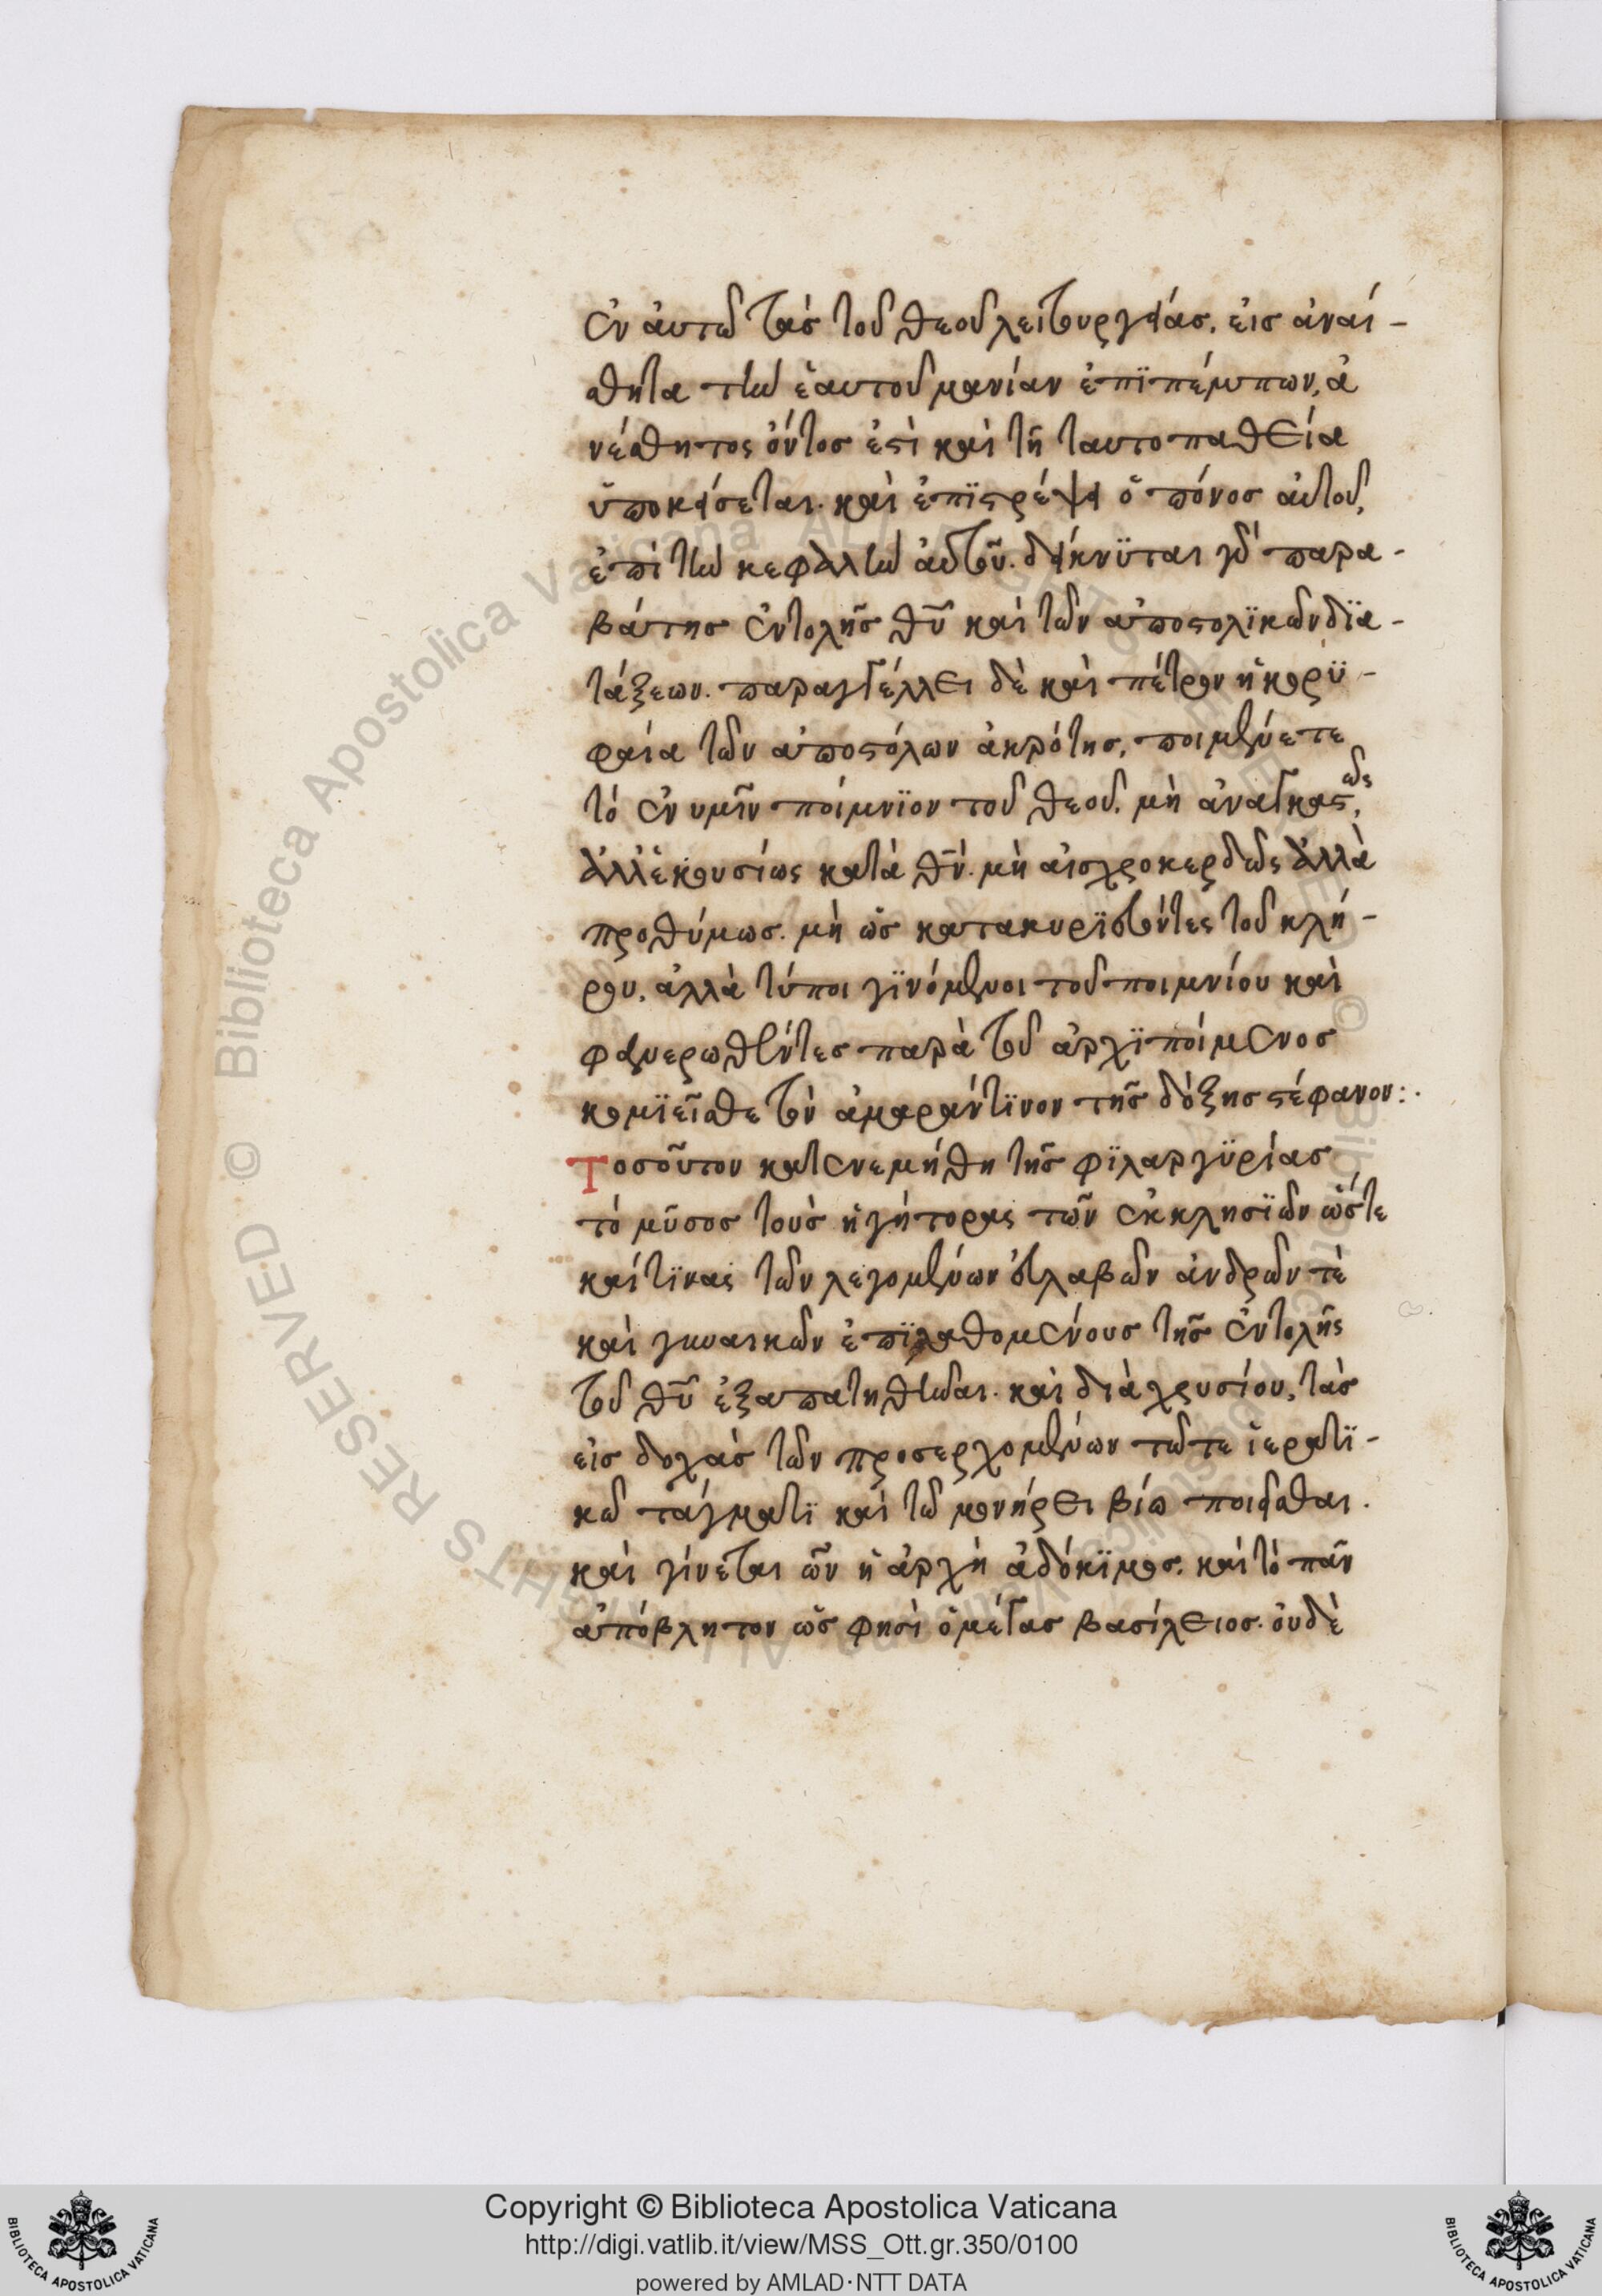 ἐν ἀυτῶ τὰσ τοῦ θεοῦ λειτουργείασ, εἰσ ἀναί-
σθητα τὴν ἑαυτοῦ μανίαν ἐπϊπέμπων, ἀ
νέσθητος ὄντοσ ἐστὶ καὶ τῆ ταυτοπαθεία
ὑποκείσεται. καὶ ἐπϊστρέψει ὁ πόνοσ αὐτοῦ,
ἐπὶ τὴν κεφαλὴν αὐτοῦ. δείκνϋται γὰρ παρα-
βάτησ ἐντολῆσ θῦ καὶ τῶν ἀποστολϊκῶν δϊα-
τάξεων. παραγγέλλει δὲ καὶ πέτρον ἡ κορϋ-
φαία τῶν ἀποστόλων ἀκρότησ, ποιμένετε
τὸ ἐν υμῖν ποίμνϊον τοῦ θεοῦ. μὴ ἀναγκαστῶς,
ἀλλἑκουσίως κατὰ θν. μὴ αἰσχροκερδῶς ἀλλὰ
προθύμωσ. μὴ ὡσ κατακυρϊεύοντες τοῦ κλή-
ρου, ἀλλὰ τύποι γϊνόμενοι τοῦ ποιμνίου καὶ
φανερωθέντεσ παρὰ τοῦ ἀρχϊποίμενοσ
κομϊεῖσθε τὸν ἀμαράντϊνον τῆσ δόξησ στέφανον:.
Τοσοῦτον κατενεμήθη τῆσ φϊλαργϋρίασ
τὸ μῦσοσ τοὺσ ἡγήτορας τῶν ἐκκλησϊῶν ὥστε
καί τϊνας τῶν λεγομένων εὐλαβῶν ἀνδρῶν τὲ
καὶ γυναικῶν ἐπϊλαθομένουσ τῆσ ἐντολῆς
τοῦ θῦ ἐξαπατηθῆναι. καὶ διὰ χρυσίου, τὰσ
εἰσ δοχὰσ τῶν προσερχομένων τῶ τε ἱερατϊ-
κῶ τάγματϊ καὶ τῶ μονήρει βίω ποιεῖσθαι.
καὶ γίνεται ὧν ἡ ἀρχὴ ἀδόκϊμοσ. καὶ τὸ πᾶν
ἀπόβλητον ὥσ φησὶ ὁ μέγασ βασίλειοσ. ὀυδὲ
Copyright © Biblioteca Apostolica Vaticana
http://digi.vatlib.it/view/MSS_Ott.gr.350/0100
powered by AMLAD·NTT DATA